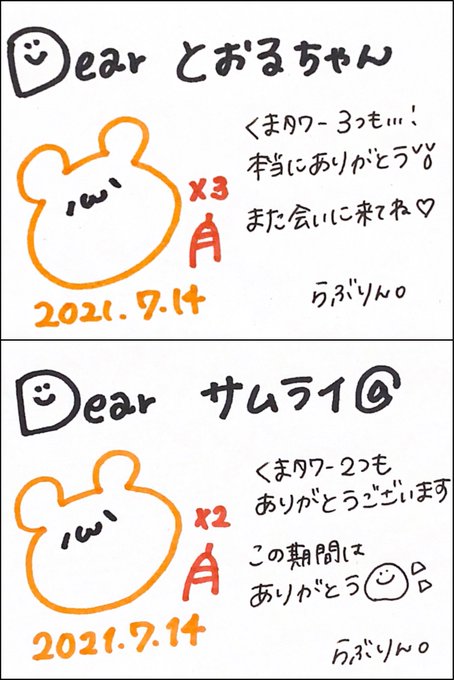 Dear とおるちゃん
くまタワー3つも…!
本当にありがとう
また会いに来てね♡
×3
2021.7.14
らぶりん。
Dear サムライ@
くまタワー2つも
ありがとうございます
この期間は
ありがとう
×2
2021.7.14
らぶりん。